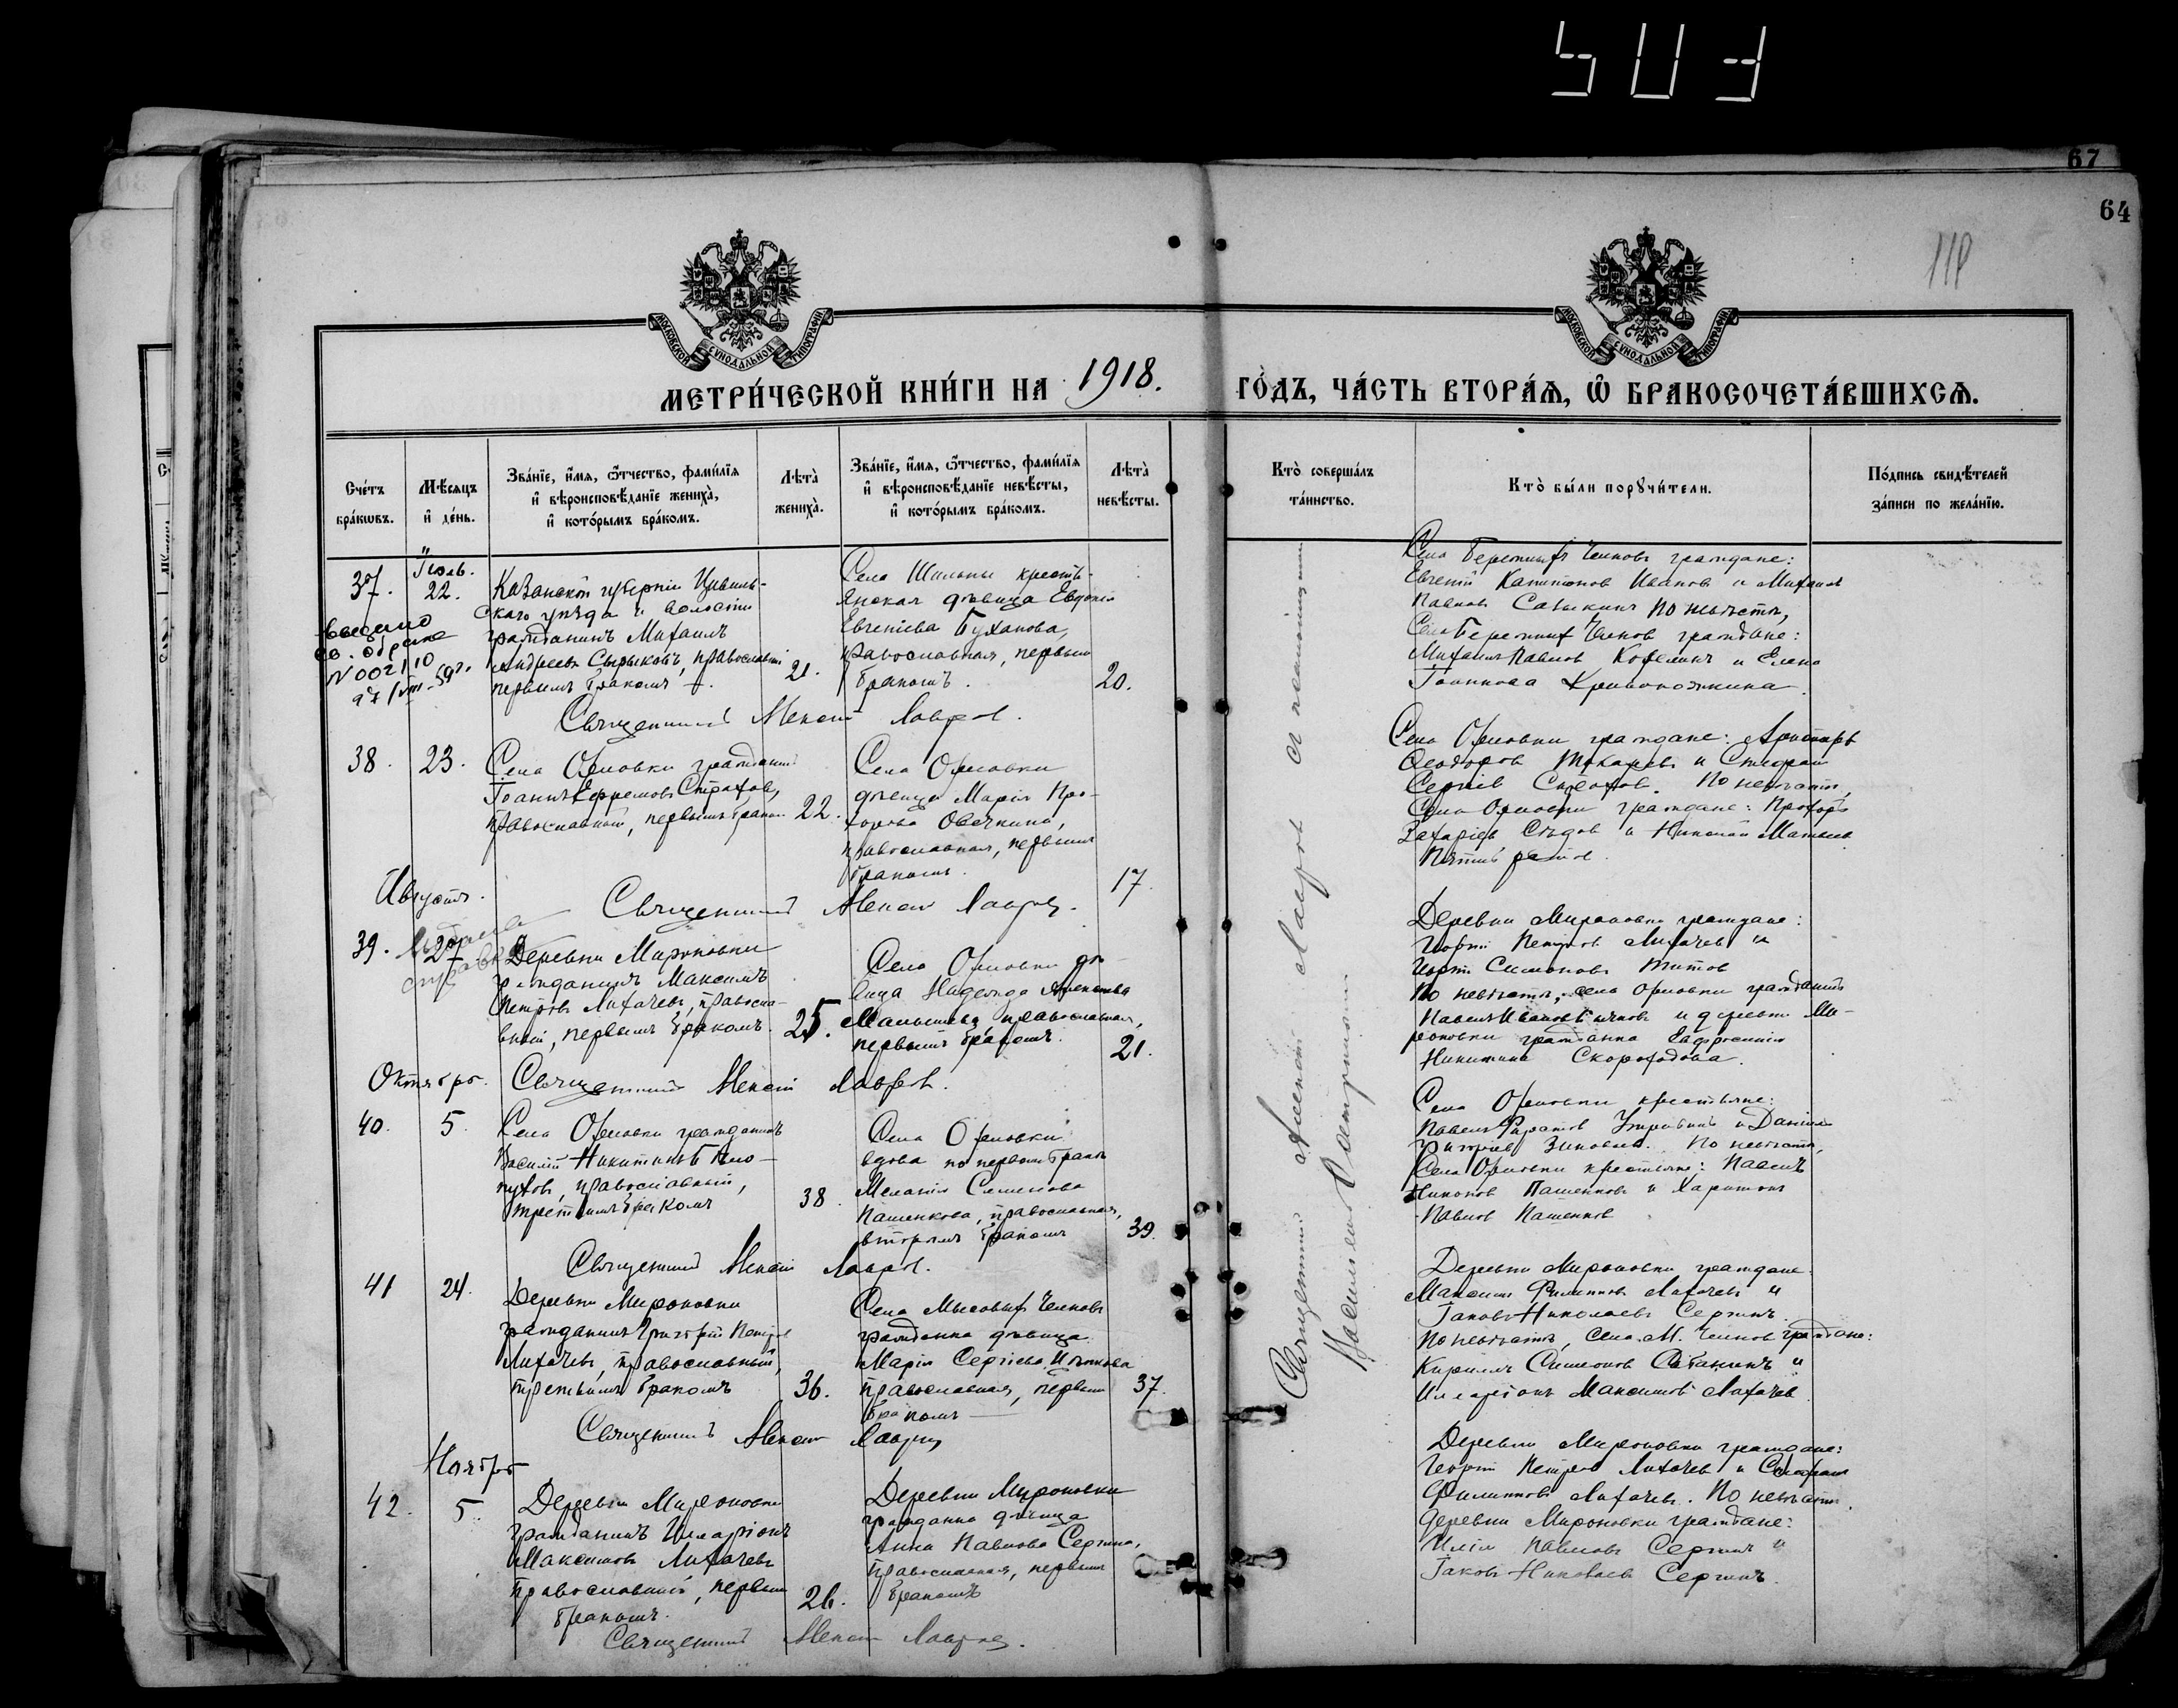 503
67
64
118
МОСКОВСКОЙ СУНОДАЛЬНОЙ ТИПОГРАФІИ
МОСКОВСКОЙ СУНОДАЛЬНОЙ ТИПОГРАФІИ
МЕТРИ́ЧЕСКОЙ КНИ́ГИ НА 1918. ГО́ДЪ, ЧА́СТЬ ВТОРА́Ѧ, Ѽ БРАКОСОЧЕТА́ВШИХСѦ.
Сче́тъ бра́кѡвъ.
Мѣ́сѧцъ и҆ де́нь.
Зва́нїе, и҆́мѧ, ѻ҆́тчество, фами́лїѧ
и҆ вѣроисповѣ́данїе жениха̀,
и҆ кото́рымъ бра́комъ.
Лѣта̀ жениха̀.
Зва́нїе, и҆́мѧ, ѻ҆́тчество, фами́лїѧ
и҆ вѣроисповѣ́данїе невѣ́сты,
и҆ кото́рымъ бра́комъ.
Лѣта̀ невѣ́сты.
Кто̀ соверша́лъ та́инство.
Кто̀ бы́ли порꙋчи́тели.
По́дпись свидѣ́телей за́писи по жела́нїю.
Іюль.
37.
22.
Казанской губерніи Цивиль-
скаго уѣзда и волости
гражданинъ Михаилъ
Андреевъ Сырыковъ, православный
первымъ бракомъ
21.
выдано
св. о браке
N 002110
27/VIII-59г.
Села Шильны крестья-
янская дѣвица Евдокія
Евгеніева Буханова,
православная, первымъ
бракомъ.
20.
Села Бережныхъ Челновъ граждане:
Евгеній Капитонов Иванов и Михаилъ
Павловъ Савыкинъ по невѣстѣ,
Села Бережныхъ Челновъ граждане:
Михаилъ Павлов и Елена
Іоаннова Кривоножкина.
Священникъ Алексій Лавров.
38.
23.
Села Орловки гражданинъ
Іоаннъ Ефремовъ Страхов,
православный, первымъ бракомъ
22.
Села Орловки
дѣвица Марія Про-
хорова Овечкина,
православная, первымъ
бракомъ.
17.
Села Орловки граждане:
Ѳеодоров Токарев и Стефанъ
Сергіев. По невѣстѣ,
Села Орловки граждане: Прохоръ
Захаріевъ Сѣдов и Николай Матвеев
Священникъ Алексій Лавров.
Августъ.
39.
27
выдана
справка
Деревни Мироновки
гражданинъ Максимъ
Петровъ Лихачевъ, правосла-
вный, первымъ бракомъ.
25.
Села Орловки дѣ-
вица Надежда Алексѣева
Малышева, православная,
первымъ бракомъ.
21.
Деревни Мироновки граждане:
Георгій Петров Лихачевъ и
Георгій Симеоновъ Титов
По невѣстѣ, села Орловки гражданинъ
Павелъ Иванов и деревни Ми-
роновки гражданка Евфросинія
Никитина Скороходова.
Октябрь.
Священникъ Алексій Лавров.
40.
5.
Села Орловки гражданинъ
Василій Никитинъ Бело-
пухов, православный,
третьимъ бракомъ
38.
Села Орловки
вдова по первомъ бракѣ
Меланія Симеонова
Пашенкова, православная,
вторымъ бракомъ
39.
Села Орловки крестьяне:
Павелъ и Даніилъ
Григорьев Зиновьев. По невѣстѣ,
Села Орловки крестьяне: Павелъ
Никонов Пашенковъ и Харитонъ
Павлов Пашенков
Священникъ Алексій Лавров.
41
24.
Деревни Мироновки
гражданинъ Григорій Петров
Лихачевъ, православный,
третьимъ бракомъ
36.
Села Мысовыхъ Челновъ
гражданка дѣвица
Марія Сергіева
православная, первымъ
бракомъ
37.
Деревни Мироновки граждане:
Максимъ Филипповъ Лихачевъ и
Іаковъ Николаевъ Сергинъ.
По невѣстѣ, села М. Челновъ граждане:
Кириллъ Симеонов и
Илларіонъ Максимовъ Лихачев.
Священникъ Алексій Лавров
Ноябрь
42.
5
Деревни Мироновки
гражданинъ Илларіонъ
Максимовъ Лихачевъ
православный, первымъ
бракомъ.
26.
Деревни Мироновки
гражданка дѣвица
Анна Павлова Сергина,
православная, первымъ
бракомъ
Деревни Мироновки граждане:
Георгій Петров Лихачев и Стефанъ
Филипповъ Лихачевъ. По невѣстѣ.
деревни Мироновки граждане:
Илія Павловъ Сергинъ и
Іаковъ Николаевъ Сергинъ.
Священникъ Алексій Лавров.
Священникъ Алексій Лавров съ псаломщикомъ